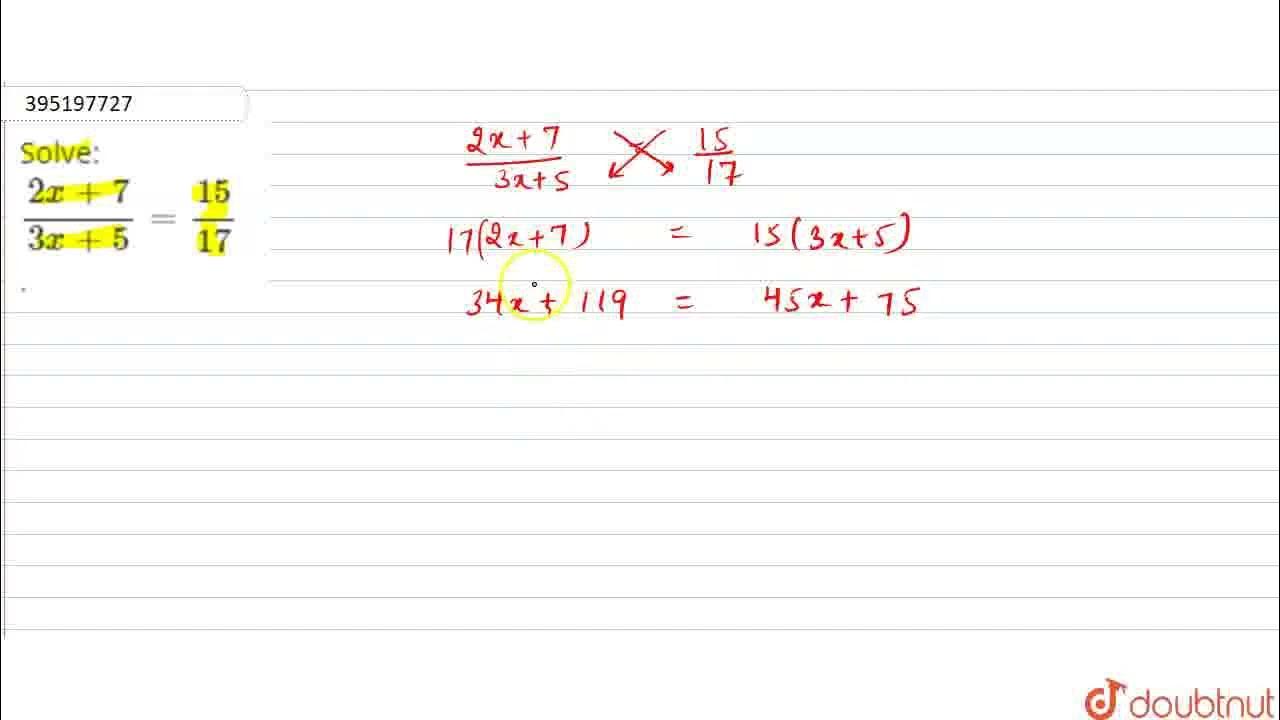 395197727
Solve:
2x + 7 / 3x + 5 = 15 / 17
.
2x + 7 / 3x + 5   15 / 17
17(2x + 7) = 15(3x + 5)
34x + 119 = 45x + 75
doubtnut